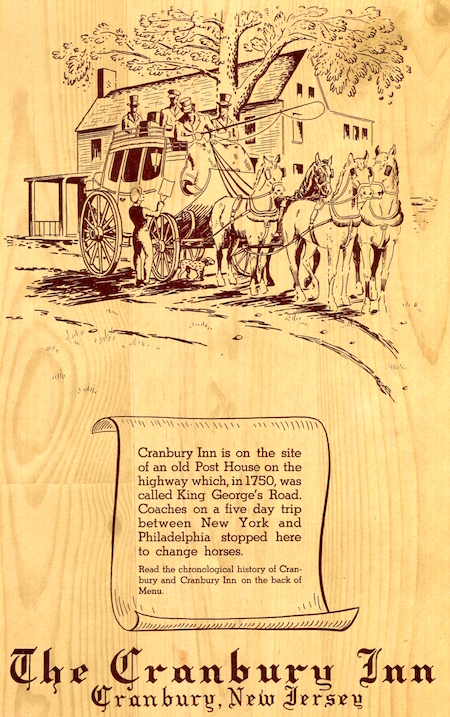 Cranbury Inn is on the site
of an old Post House on the
highway which, in 1750, was
called King George's Road.
Coaches on a five day trip
between New York and
Philadelphia stopped here
to change horses.
Read the chronological history of Cran-
bury and Cranbury Inn on the back of
Menu.
The Cranbury Inn
Cranbury, New Jersey